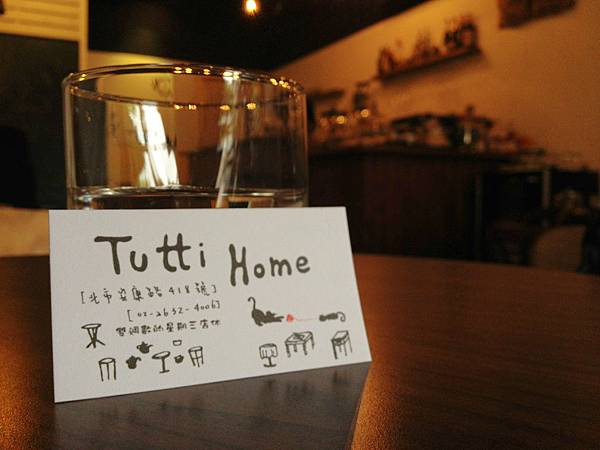 Tutti Home
[北市安康路418號]
[02-2632-4006]
雙週數的星期三店休